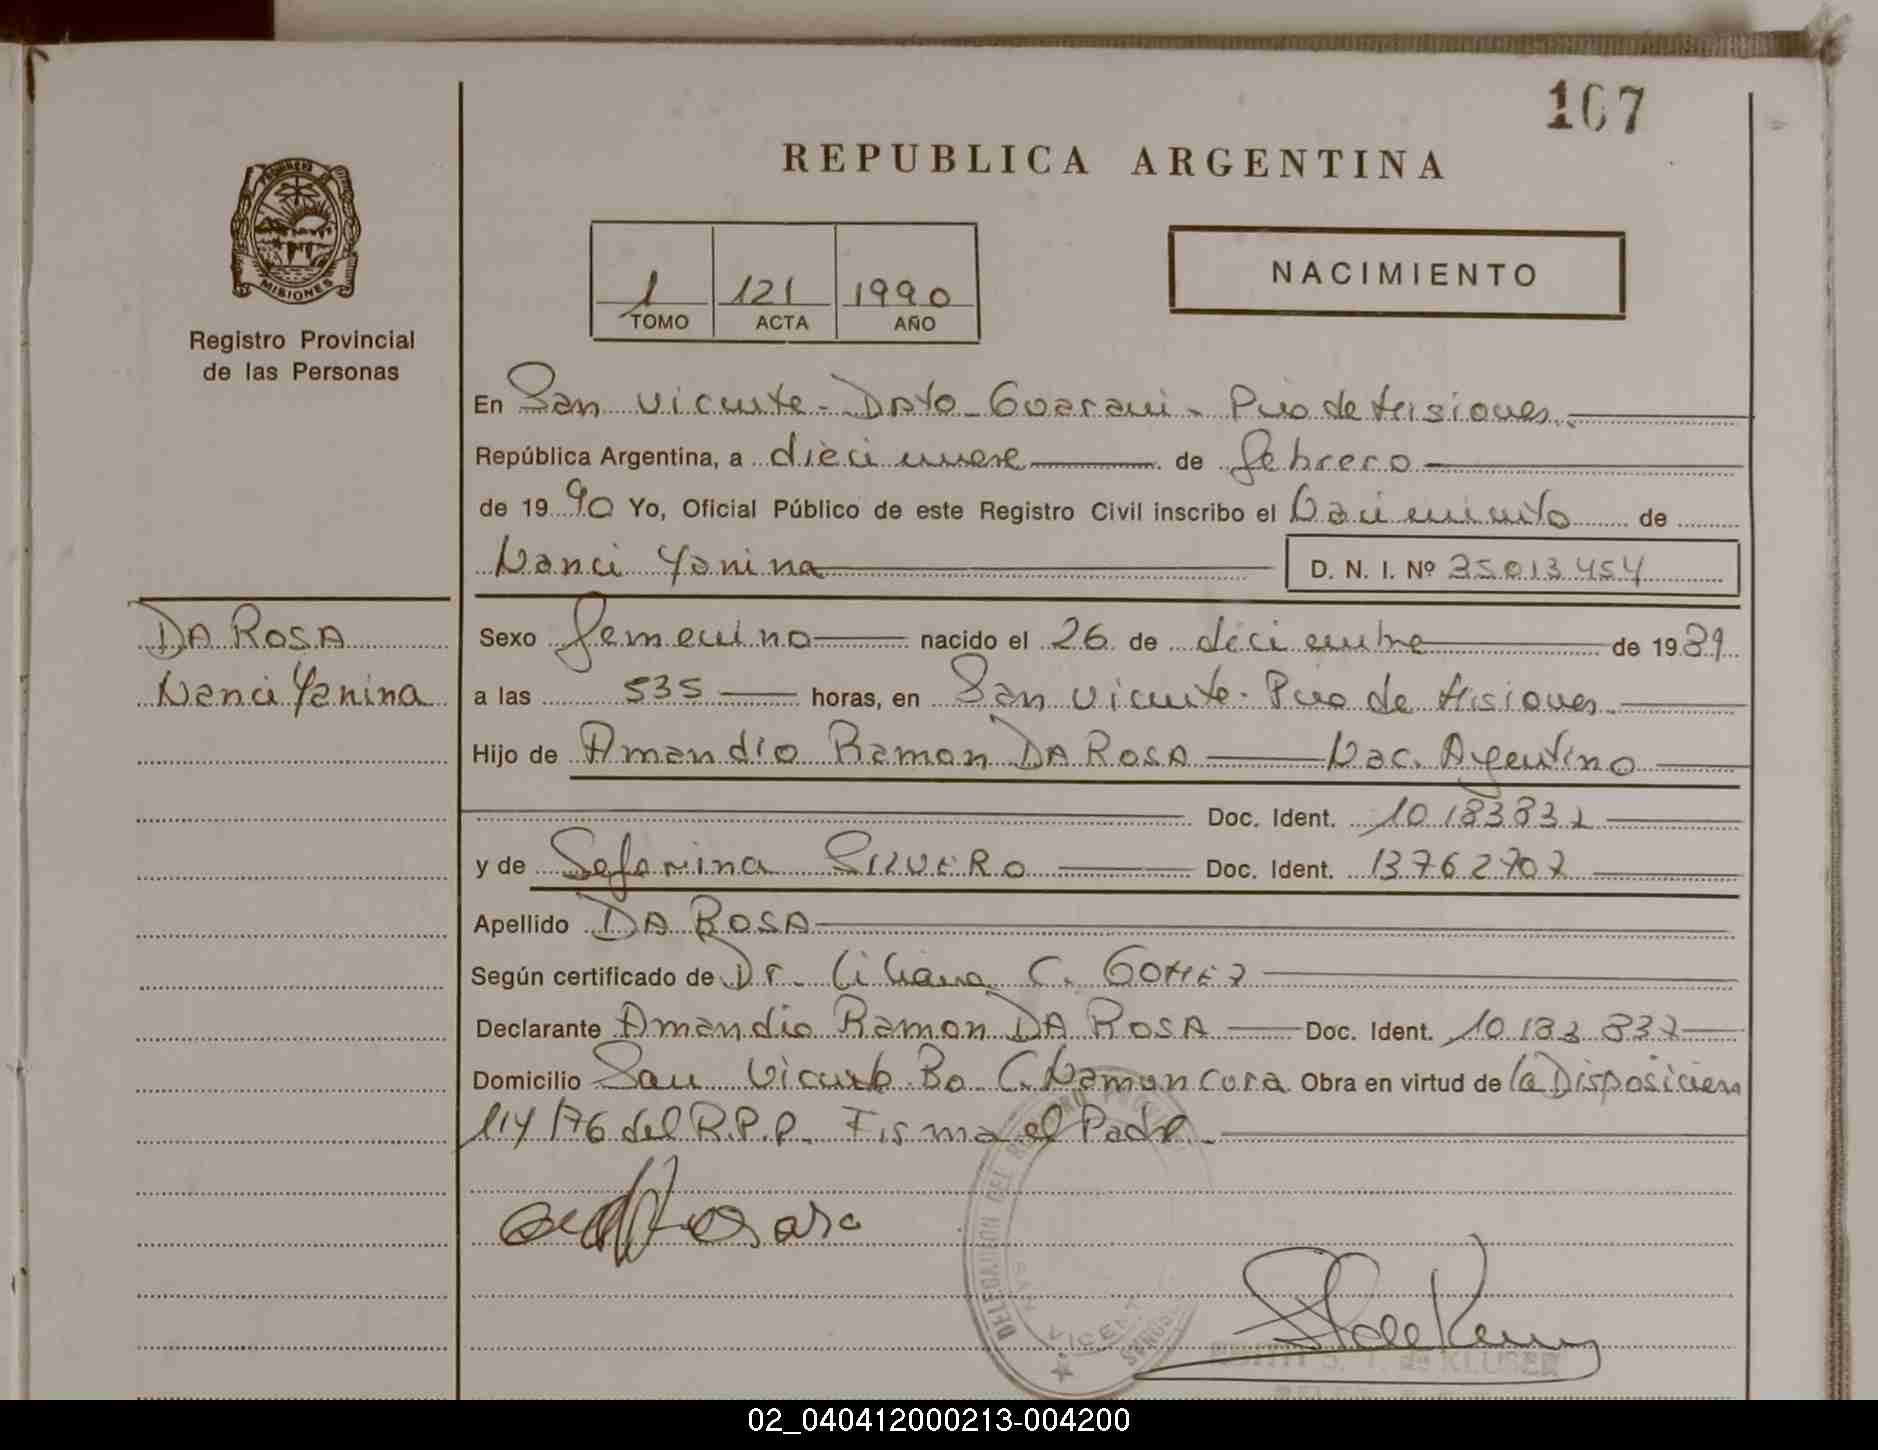 107
REPUBLICA ARGENTINA
MISIONES
Registro Provincial
de las Personas
1 121 1990
TOMO ACTA AÑO
NACIMIENTO
En San Vicente - Dpto - Guarani - Pcio de Misiones.
República Argentina, a diecinueve de febrero
de 1990 Yo, Oficial Público de este Registro Civil inscribo el Nacimiento de
Nanci Yanina D. N. I. Nº 35013454
DA ROSA
Nanci Yanina
Sexo femenino nacido el 26 de diciembre de 1989
a las 535 horas, en San Vicente - Pcio de Misiones.
Hijo de Amandio Ramon DA ROSA Nac. Argentino
Doc. Ident. 10183832
y de Seferina SILVERO Doc. Ident. 13762707
Apellido DA ROSA
Según certificado de Dr. Liliana C. GOMEZ
Declarante Amandio Ramon DA ROSA Doc. Ident. 10183832
Domicilio San Vicente Bo C. Ñamoncora Obra en virtud de la Disposicion
114/76 del R.P.P. Firma el Padre.
DELEGACION DEL
SAN VICENTE
de KLUSER
02_040412000213-004200